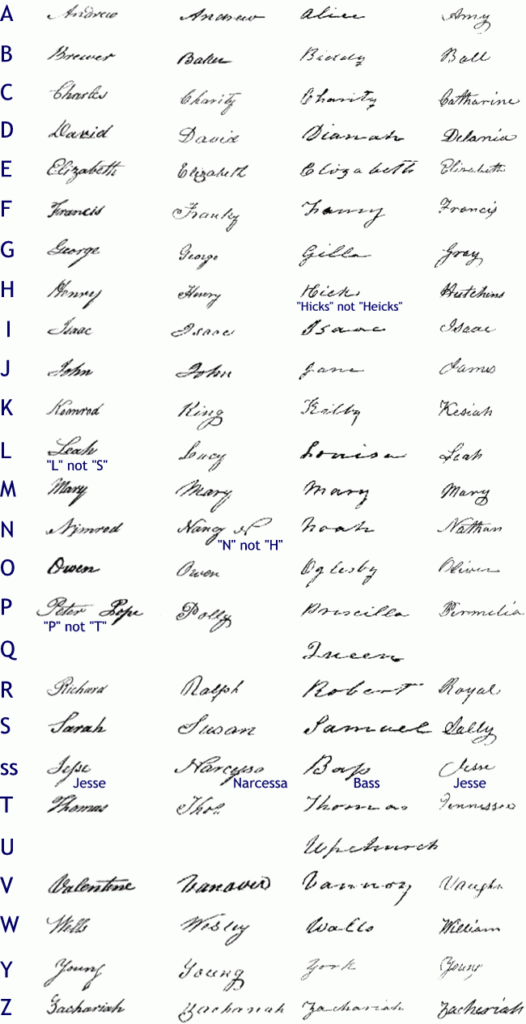 A Andrew Andrew Alice Amy
B Brewer Baker Biddy Ball
C Charles Charity Charity Catharine
D David David Dianah Delania
E Elizabeth Elizabeth Elizabeth Elizabeth
F Francis Franky Fanny Francis
G George George Gilla Gray
H Henry Henry Hicks Hutchins
"Hicks" not "Heicks"
I Isaac Isaac Isaac Isaac
J John John Jane James
K Kimrod King Kilby Kesiah
L Leah Lucy Louisa Leah
"L" not "S"
M Mary Mary Mary Mary
N Nimrod Nancy N Noah Nathan
"N" not "H"
O Owen Owen Oglesby Oliver
P Peter Pope Polly Priscilla Permelia
"P" not "T"
Q Queen
R Richard Ralph Robert Royal
S Sarah Susan Samuel Sally
ss Jesse Narcessa Bass Jesse
Jesse Narcessa Bass Jesse
T Thomas Thos Thomas Tennessee
U Upchurch
V Valentine Vanover Vannoy Vaughn
W Wells Wesley Watts William
Y Young Young York Young
Z Zachariah Zachariah Zachariah Zacheriah